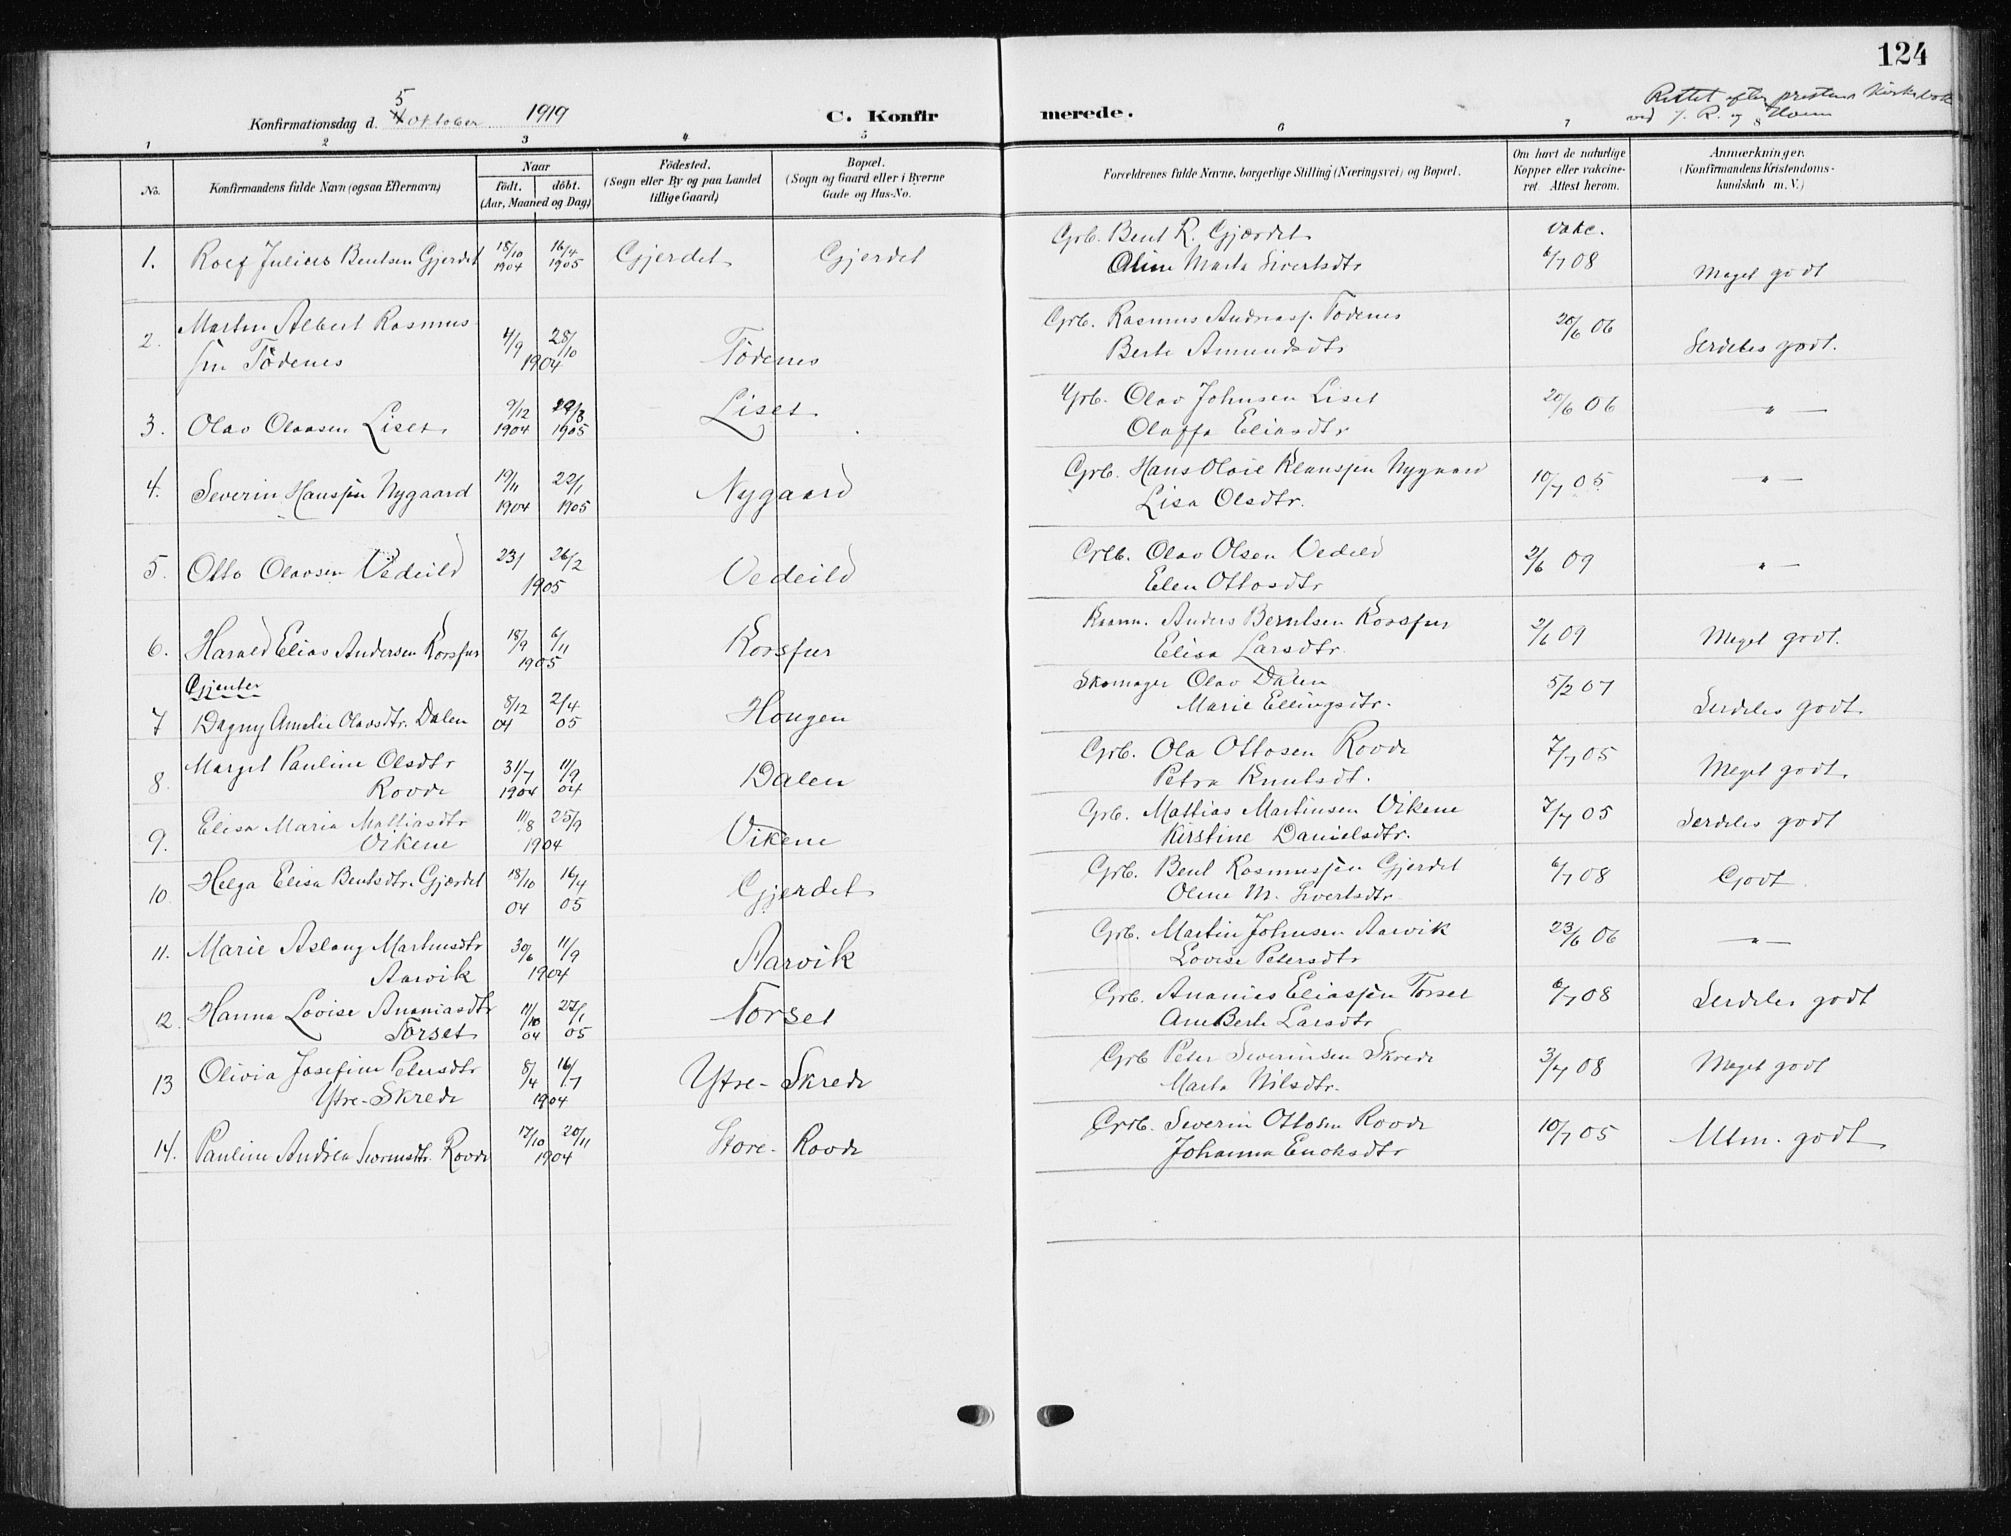 124
Rettet efter prestens Kirkebok
ved J. R. og Hovm
Konfirmationsdag d. 5 Oktober 1919
C. Konfirmerede.
1 2 3 4 5 6 7 8
No.
Konfirmandens fulde Navn (ogsaa Efternavn)
Naar
födt. döbt.
(Aar, Maaned og Dag)
Födested.
(Sogn eller By og paa Landet
tillige Gaard)
Bopæl.
(Sogn og Gaard eller i Byerne
Gade og Hus-No.
Forældrenes fulde Navne, borgerlige Stilling (Næringsvei) og Bopæl.
Om havt de naturlige
Kopper eller vakcine-
ret. Attest herom.
Anmærkninger.
(Konfirmandens Kristendoms-
kundskab m. V.)
1. Rolf Julius Bentsen Gjerdet 18/10 1904 16/4 1905 Gjerdet Gjerdet Grb. Bent R. Gjærdet vakc.
Oline Marta Sivertsdtr 6/7 08 Meget godt
2. Martin Albert Rasmus- 4/9 28/10 Grb. Rasmus Andreass. Tödenes 20/6 06
sen Tödenes 1904 Tödenes Berte Amundsdtr Serdeles godt.
3. Olav Olavsen Liset 9/12 1904 29/3 1905 Liset Grb. Olav Johnsen Liset 20/6 06 — " —
Oluffa Eliasdtr
4. Severin Hanssen Nygaard 19/11 1904 22/1 1905 Nygaard Grb. Hans Olaie Klaussen Nygaard 10/7 05 — " —
Lisa Olsdtr.
5. Otto Olavsen Vedeild 23/1 26/2 1905 Vedeild Grb. Olav Olsen Vedeild 2/6 09 " —
Elen Ottosdtr
6. Harald Elias Andersen Korsfur 18/9 6/11 1905 Korsfur Kaarm. Anders Berntsen Korsfur 2/6 09 Meget godt.
Elisa Larsdtr.
Gjenter
7 Dagny Amelie Olavsdtr. Dalen 8/12 04 2/4 05 Hougen Skomager Olav Dalen 5/2 07 Serdeles godt.
Marie Ellingsdtr.
8. Margit Pauline Olsdtr 31/7 1904 11/9 04 Dalen Grb. Ola Ottosen Rovde 7/7 05 Meget godt.
Rovde Petra Knutsdt.
9. Elisa Maria Mattiasdtr 11/8 25/9 Grb. Mattias Martinsen Vikene 7/7 05 Serdeles godt
Vikene 1904 Vikene Kirstine Danielsdtr.
10. Helga Elisa Bentsdtr. Gjærdet 18/10 04 16/4 05 Gjerdet Grb. Bent Rasmussen Gjerdet 6/7 08 Godt
Oline M. Sivertsdtr
11. Marie Aslaug Martinsdtr 30/6 11/9 Grb. Martin Johnsen Aarvik 23/6 06 — " —
Aarvik 1904 Aarvik Lovise Petersdtr
12. Hanna Lovise Ananiasdtr 11/10 04 22/1 05 Torset Grb. Ananias Eliassen Torset 6/7 08 Serdeles godt
Torset Ane Berte Larsdtr
13 Olivia Josefine Petersdtr 8/4 16/7 Ytre-Skrede Grb Peter Severinsen Skrede 3/7 08 Meget godt
Ytre-Skrede 1904 Marta Nilsdtr.
14. Pauline Andrea Severinsdtr. Rovde 17/10 20/11 1904 Store-Rovde Grb. Severin Ottosen Rovde 10/7 05 Utm. godt
Johanna Enoksdtr